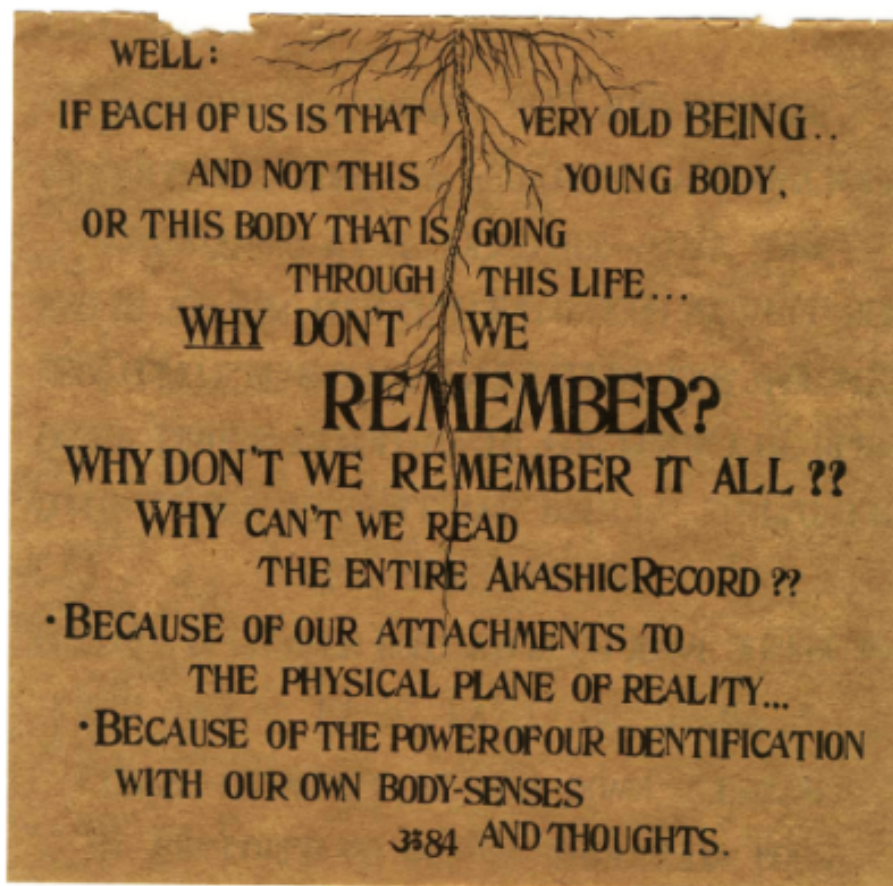 WELL:
IF EACH OF US IS THAT VERY OLD BEING..
AND NOT THIS YOUNG BODY,
OR THIS BODY THAT IS GOING
THROUGH THIS LIFE...
WHY DON'T WE
REMEMBER?
WHY DON'T WE REMEMBER IT ALL ??
WHY CAN'T WE READ
THE ENTIRE AKASHIC RECORD ??
•BECAUSE OF OUR ATTACHMENTS TO
THE PHYSICAL PLANE OF REALITY...
•BECAUSE OF THE POWER OF OUR IDENTIFICATION
WITH OUR OWN BODY-SENSES
84 AND THOUGHTS.